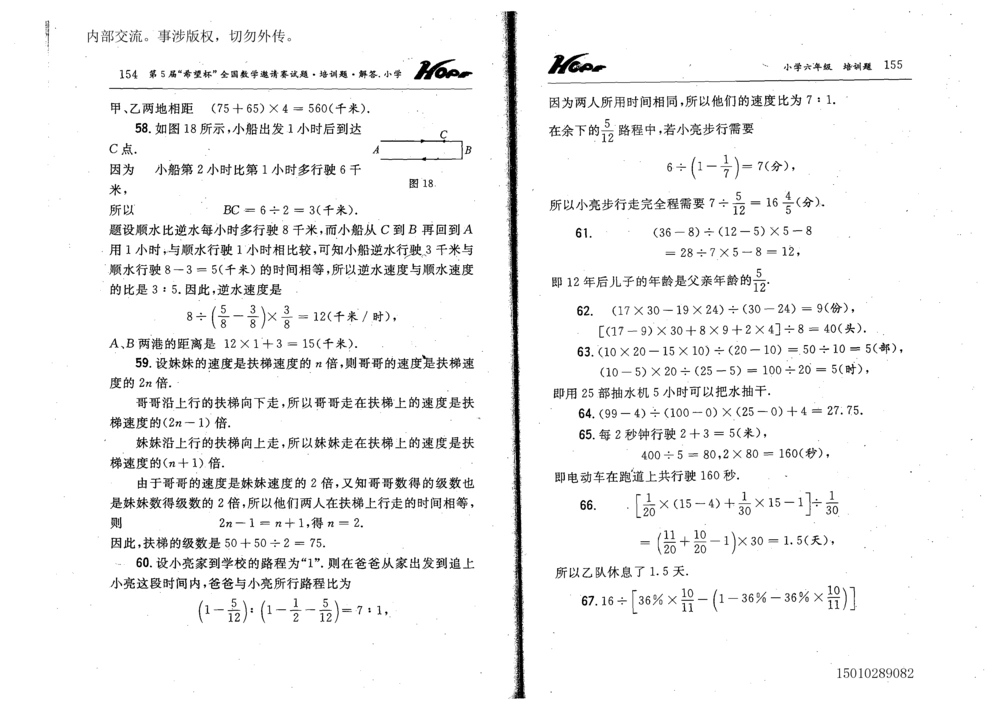 内部交流。事涉版权，切勿外传。
154 第5届“希望杯”全国数学邀请赛试题·培训题·解答.小学 Hope
甲、乙两地相距 (75+65)×4=560(千米).
58. 如图18所示,小船出发1小时后到达
C点.
因为 小船第2小时比第1小时多行驶6千
米,
所以 BC=6÷2=3(千米).
A C B
图18
题设顺水比逆水每小时多行驶8千米,而小船从C到B再回到A
用1小时,与顺水行驶1小时相比较,可知小船逆水行驶3千米与
顺水行驶8-3=5(千米)的时间相等,所以逆水速度与顺水速度
的比是3:5.因此,逆水速度是
8÷(5/8-3/8)×3/8=12(千米/时),
A、B两港的距离是 12×1+3=15(千米).
59. 设妹妹的速度是扶梯速度的n倍,则哥哥的速度是扶梯速
度的2n倍.
哥哥沿上行的扶梯向下走,所以哥哥走在扶梯上的速度是扶
梯速度的(2n-1)倍.
妹妹沿上行的扶梯向上走,所以妹妹走在扶梯上的速度是扶
梯速度的(n+1)倍.
由于哥哥的速度是妹妹速度的2倍,又知哥哥数得的级数也
是妹妹数得级数的2倍,所以他们两人在扶梯上行走的时间相等,
则 2n-1=n+1,得n=2.
因此,扶梯的级数是50+50÷2=75.
60. 设小亮家到学校的路程为“1”.则在爸爸从家出发到追上
小亮这段时间内,爸爸与小亮所行路程比为
(1-5/12):(1-1/2-5/12)=7:1,
Hope 小学六年级 培训题 155
因为两人所用时间相同,所以他们的速度比为7:1.
在余下的5/12路程中,若小亮步行需要
6÷(1-1/7)=7(分),
所以小亮步行走完全程需要7÷5/12=16 4/5(分).
61. (36-8)÷(12-5)×5-8
=28÷7×5-8=12,
即12年后儿子的年龄是父亲年龄的5/12.
62. (17×30-19×24)÷(30-24)=9(份),
[(17-9)×30+8×9+2×4]÷8=40(头).
63. (10×20-15×10)÷(20-10)=50÷10=5(部),
(10-5)×20÷(25-5)=100÷20=5(时),
即用25部抽水机5小时可以把水抽干.
64. (99-4)÷(100-0)×(25-0)+4=27.75.
65. 每2秒钟行驶2+3=5(米),
400÷5=80,2×80=160(秒),
即电动车在跑道上共行驶160秒.
66. [1/20×(15-4)+1/30×15-1]÷1/30
=(11/20+10/20-1)×30=1.5(天),
所以乙队休息了1.5天.
67. 16÷[36%×10/11-(1-36%-36%×10/11)]
15010289082